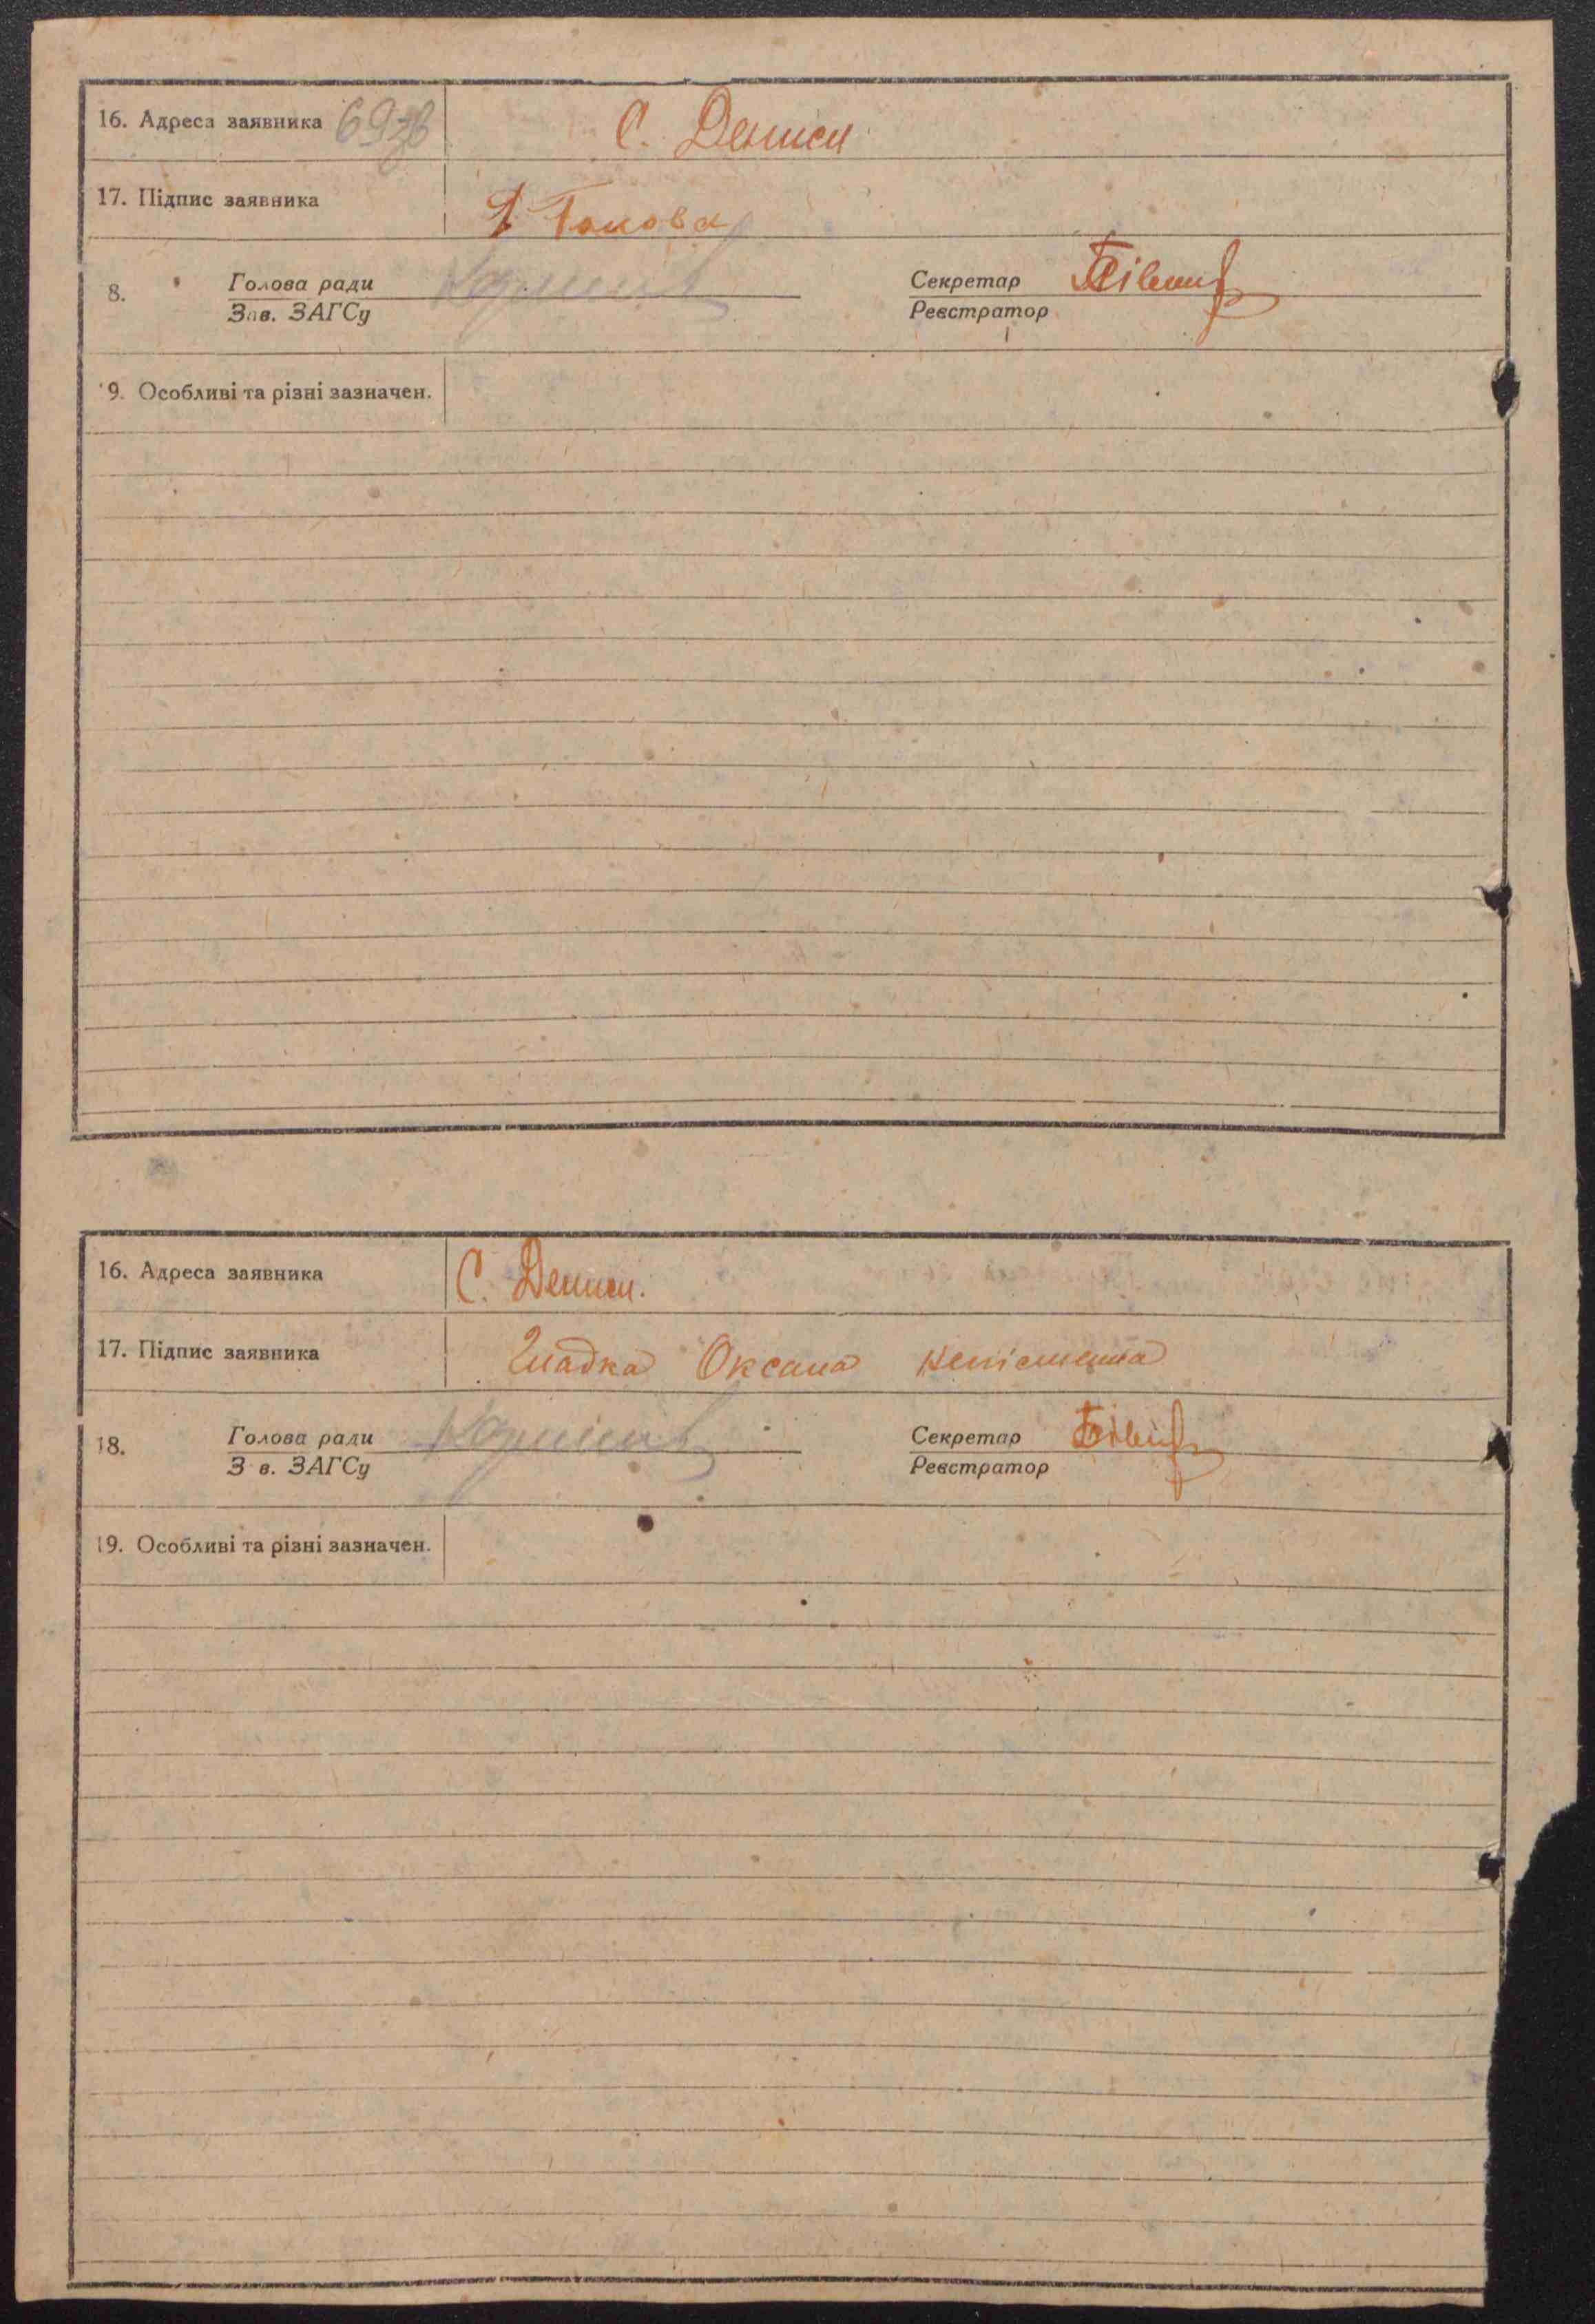 16. Адреса заявника С. Дениси
17. Підпис заявника
8. Голова ради Секретар
Зав. ЗАГСу Реєстратор
9. Особливі та різні зазначен.
16. Адреса заявника С. Дениси.
17. Підпис заявника Гладка Оксана неписменна
18. Голова ради Секретар
З в. ЗАГСу Реєстратор
19. Особливі та різні зазначен.